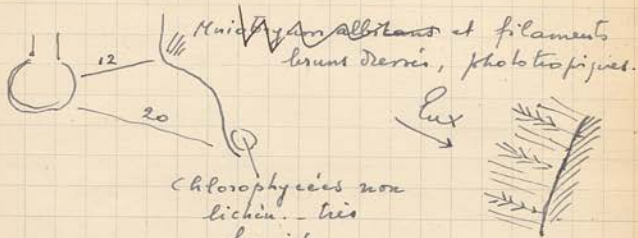 Mniobryum albicans et filaments
bruns dressés, phototropiques.
12
20
Lux
Chlorophycées non
lichén.. très